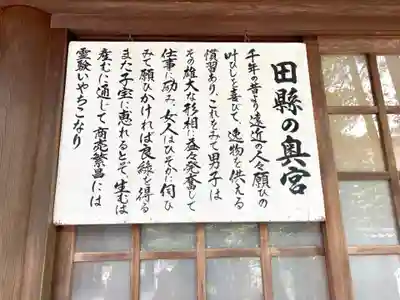 田縣の奥宮
千年の昔より遠近の人々願ひの
叶ひしを喜びて、逸物を供える
慣習あり、これをみて男子は
その雄大な形相に益々発奮して
仕事に励み、女人はひそかに伺ひ
みて願ひかければ良縁を得る
また子宝に恵れるとぞ、生むは
産むに通じて、商売繁昌には
霊験いやちこなり